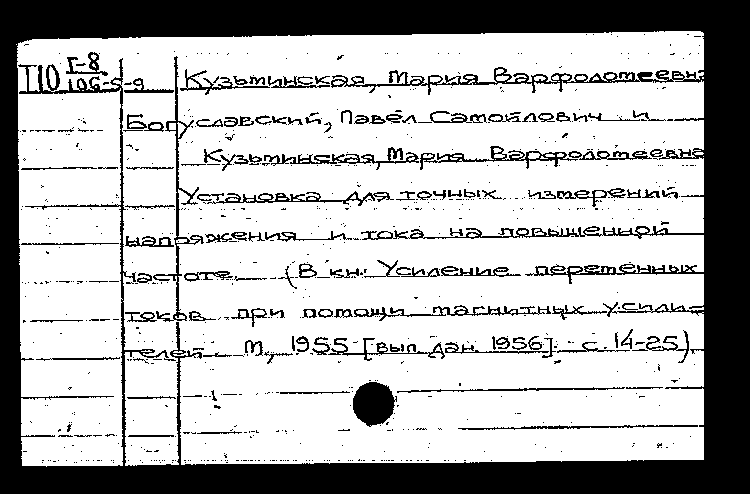 П10 Г-8
106-5-9
Кузьминская, Мария Варфоломеевна
Богуславский, Павел Самойлович и
Кузьминская, Мария Варфоломеевна
Установка для точных измерений
напряжения и тока на повышенной
частоте. (В кн. Усиление переменных
токов при помощи магнитных усили-
телей. М, 1955 [вып. дан. 1956]. с. 14-25).